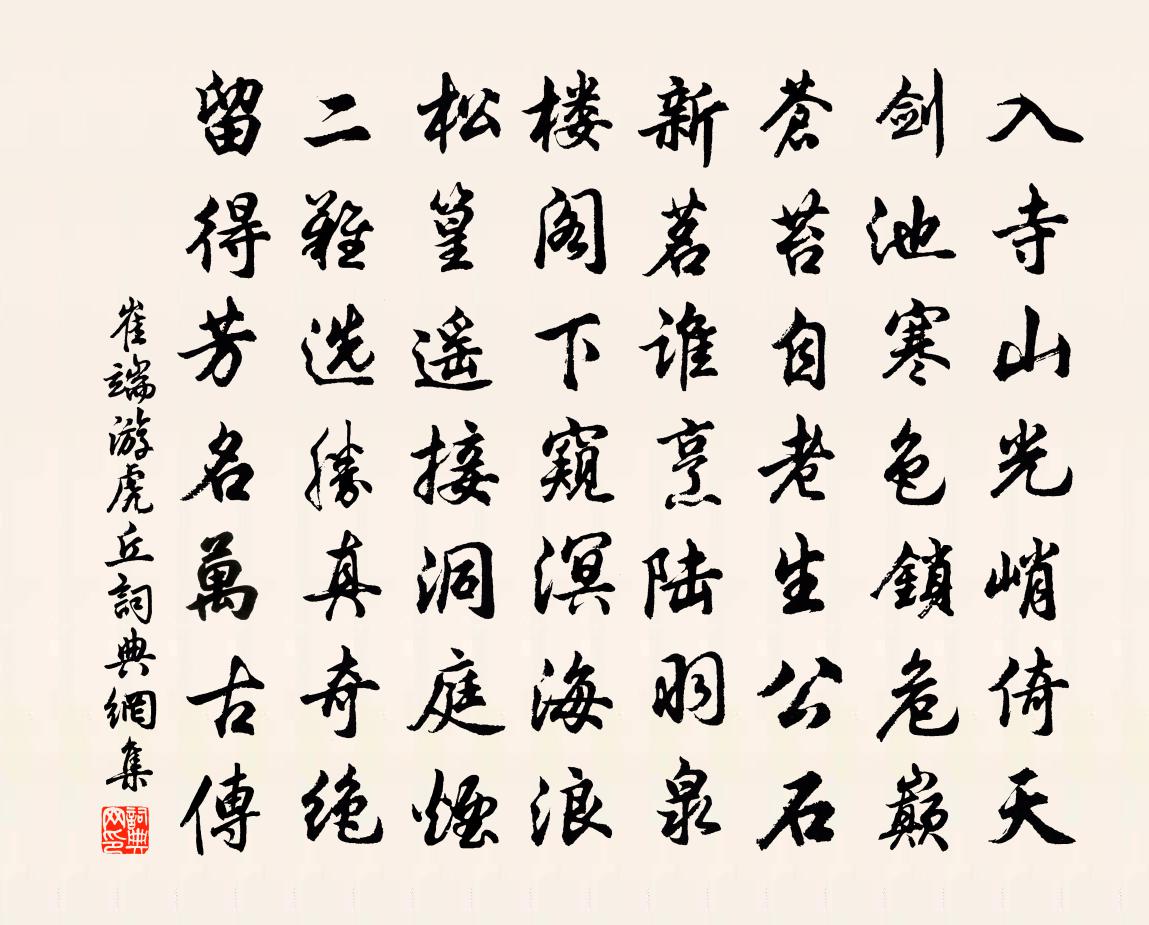 入寺山光峭倚天
剑池寒色鎖危巔
蒼苔自老生公石
新茗谁烹陆羽泉
楼阁下窺溟海浪
松篁遥接洞庭煙
二難选勝真奇绝
留得芳名萬古傳
崔端游虎丘詞典網集
詞典网印